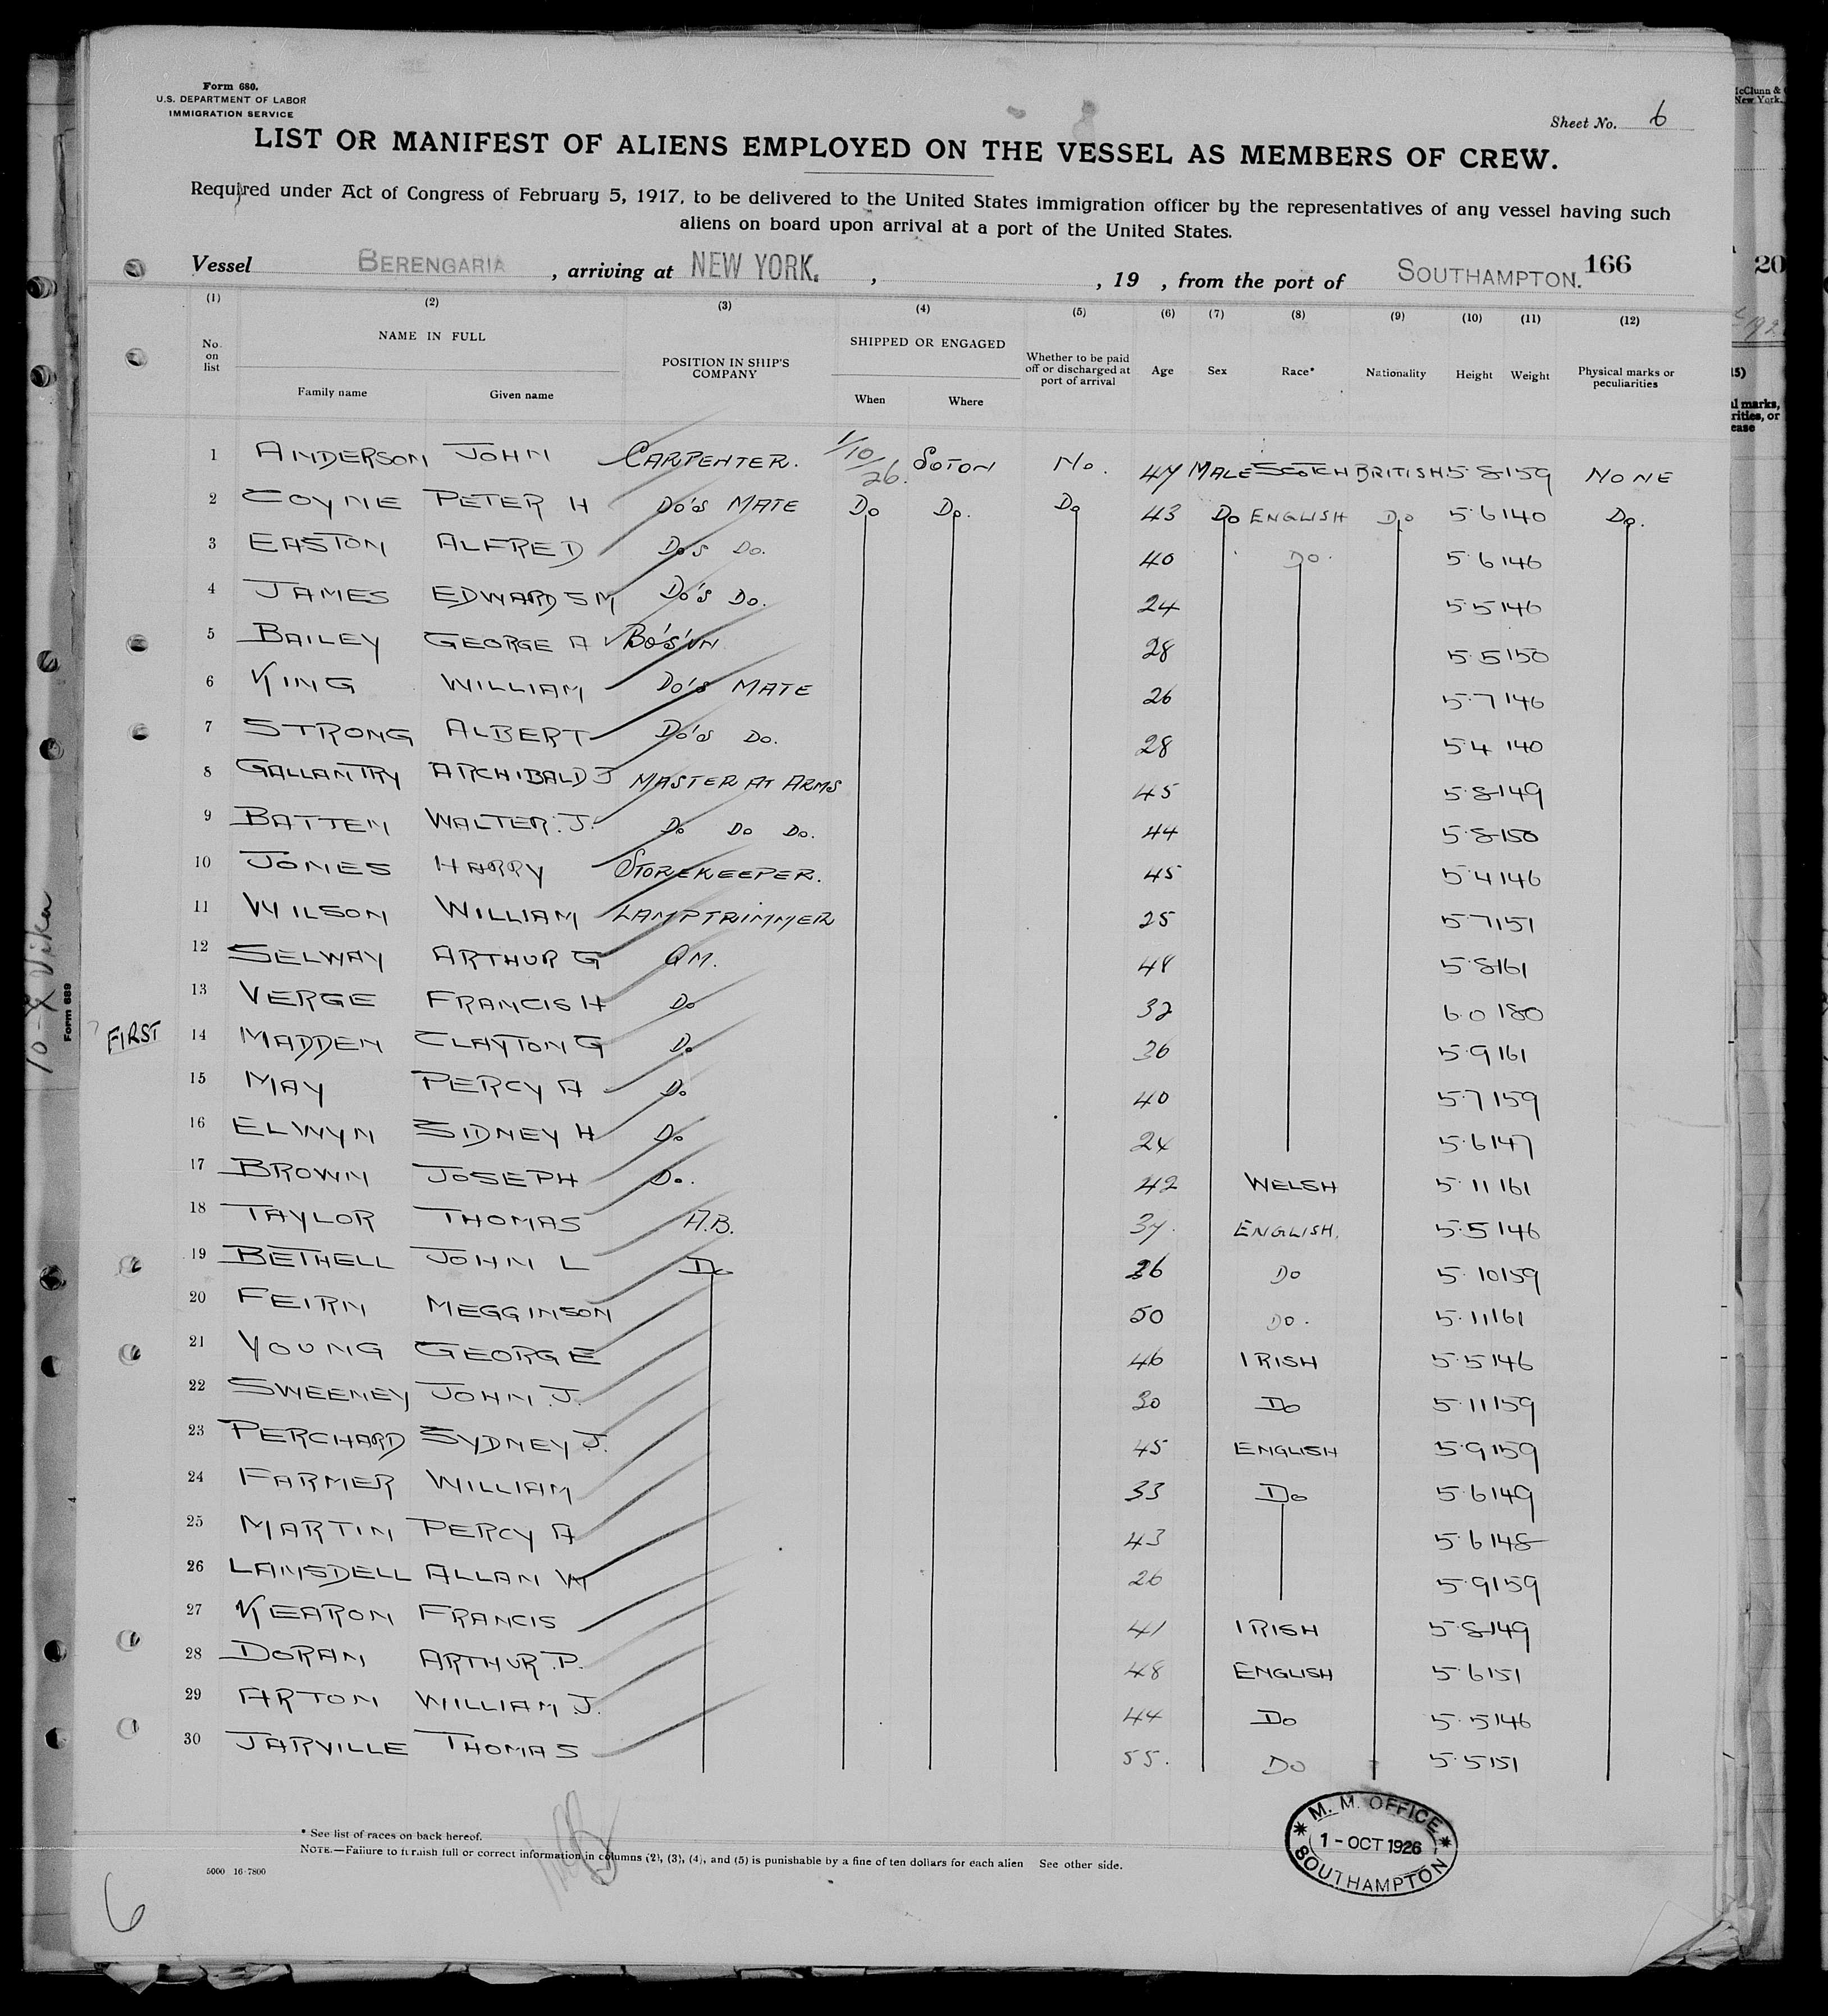 Form 680.
U.S. DEPARTMENT OF LABOR
IMMIGRATION SERVICE
Sheet No. 6
LIST OR MANIFEST OF ALIENS EMPLOYED ON THE VESSEL AS MEMBERS OF CREW.
Required under Act of Congress of February 5, 1917, to be delivered to the United States immigration officer by the representatives of any vessel having such
aliens on board upon arrival at a port of the United States.
Vessel BERENGARIA , arriving at NEW YORK. , , 19 , from the port of SOUTHAMPTON. 166
(1) (2) (3) (4) (5) (6) (7) (8) (9) (10) (11) (12)
No. on list NAME IN FULL Family name Given name POSITION IN SHIP'S COMPANY SHIPPED OR ENGAGED When Where Whether to be paid off or discharged at port of arrival Age Sex Race* Nationality Height Weight Physical marks or peculiarities
1 ANDERSON JOHN CARPENTER. 1/10/26. SOTON No. 47 MALE SCOTCH BRITISH 5·8 159 NONE
2 COYNE PETER H Do's MATE Do Do. Do 43 Do ENGLISH Do 5·6 140 Do.
3 EASTON ALFRED Do's Do. 40 Do. 5·6 146
4 JAMES EDWARD S M Do's Do. 24 5·5 146
5 BAILEY GEORGE A Bo's'un 28 5·5 150
6 KING WILLIAM Do's MATE 26 5·7 146
7 STRONG ALBERT Do's Do. 28 5·4 140
8 GALLANTRY ARCHIBALD J MASTER AT ARMS 45 5·8 149
9 BATTEN WALTER. J. Do Do Do. 44 5·8 150
10 JONES HARRY STOREKEEPER. 45 5·4 146
11 WILSON WILLIAM LAMPTRIMMER 25 5·7 151
12 SELWAY ARTHUR G QM. 48 5·8 161
13 VERGE FRANCIS H Do 32 6·0 180
FIRST 14 MADDEN CLAYTON G Do 36 5·9 161
15 MAY PERCY A Do 40 5·7 159
16 ELWYN SIDNEY H Do 24 5·6 147
17 BROWN JOSEPH Do. 42 WELSH 5·11 161
18 TAYLOR THOMAS A.B. 37. ENGLISH. 5·5 146
19 BETHELL JOHN L Do 26 Do 5·10 159
20 FEIRN MEGGINSON 50 Do. 5·11 161
21 YOUNG GEORGE 46 IRISH 5·5 146
22 SWEENEY JOHN. J. 30 Do 5·11 159
23 PERCHARD SYDNEY J. 45 ENGLISH 5·9 159
24 FARMER WILLIAM 33 Do 5·6 149
25 MARTIN PERCY A 43 5·6 148
26 LANSDELL ALLAN W 26 5·9 159
27 KEARON FRANCIS 41 IRISH 5·8 149
28 DORAN ARTHUR. P. 48 ENGLISH 5·6 151
29 ARTON WILLIAM. J. 44 Do 5·5 146
30 JARVILLE THOMAS 55. Do 5·5 151
* See list of races on back hereof.
NOTE.—Failure to furnish full or correct information in columns (2), (3), (4), and (5) is punishable by a fine of ten dollars for each alien See other side.
5000 16-7800
M. M. OFFICE
1 - OCT 1926
SOUTHAMPTON
6
Form 689
McClunn &
New York.
20